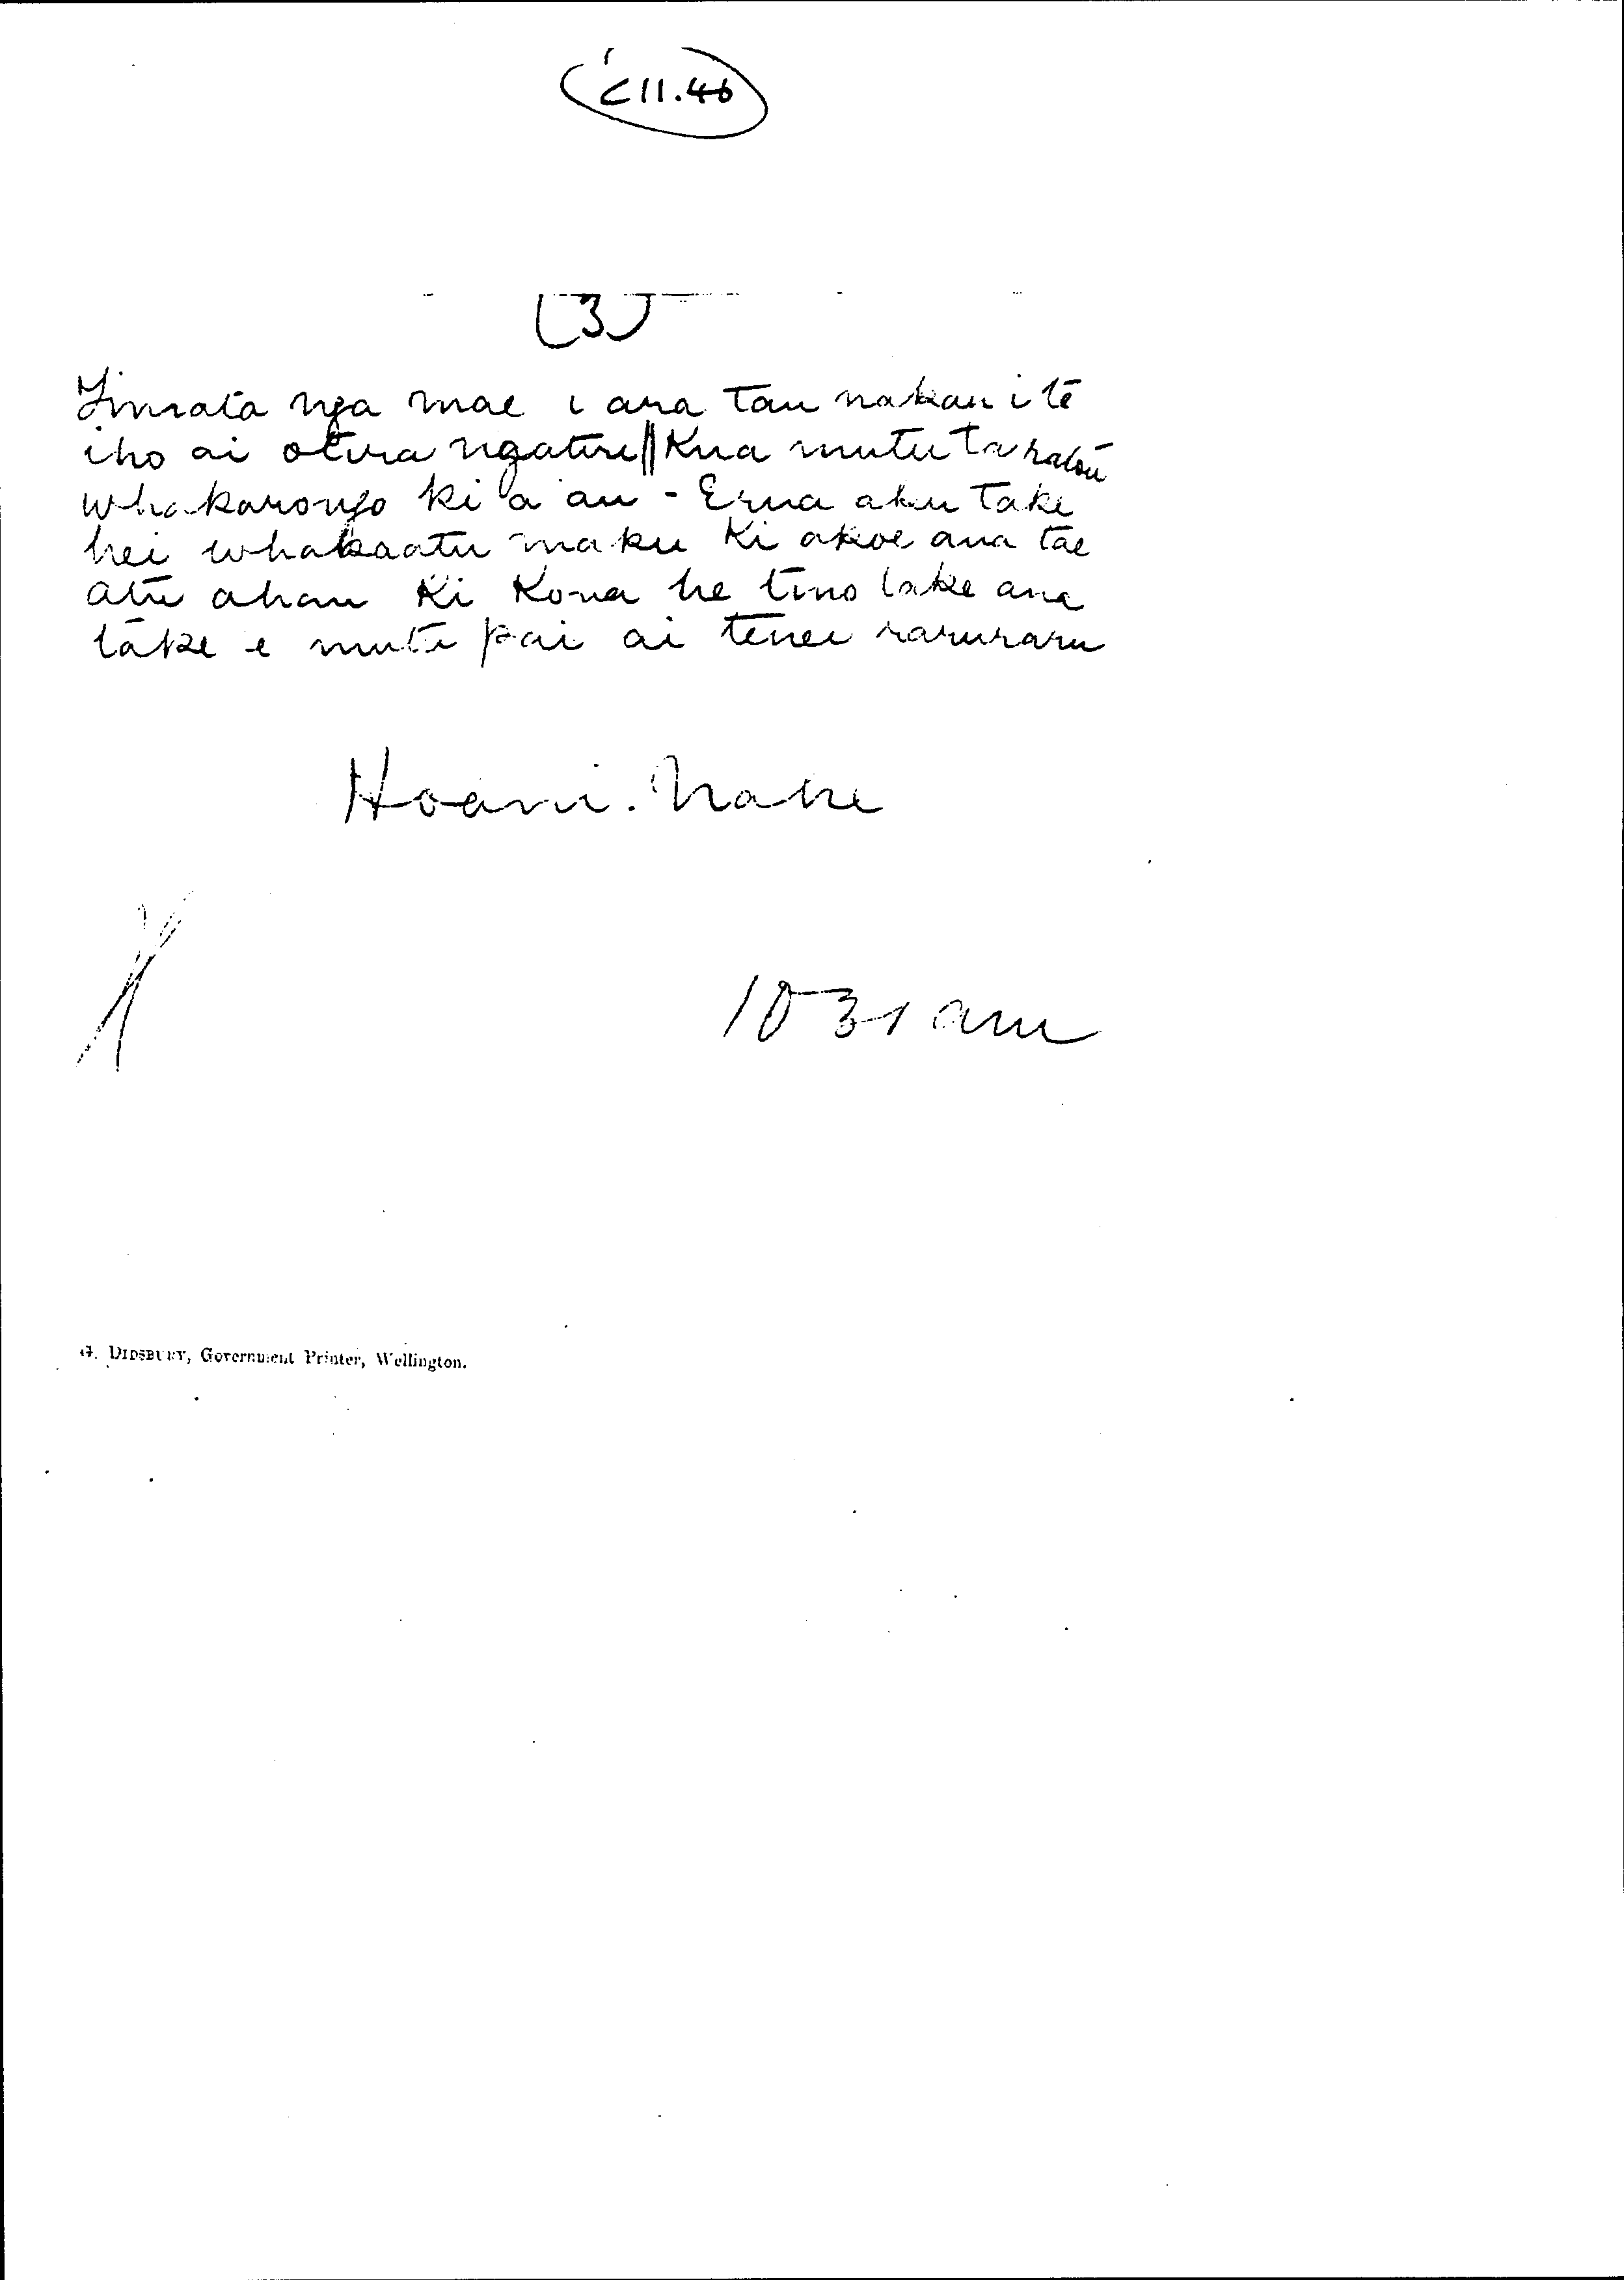 C11.46
(3)
nga mae i ana tau nakau i te
iho ai otira ngature || Kua mutu ta ratou
whakarongo ki a au - Erua aku take
hei whakaatu maku Ki akoe ana tae
atu ahau Ki Kona he tino take ana
take e mutu pai ai tenei raruraru
Hoani. Nahe
10 31 am
G. DIDSBURY, Government Printer, Wellington.